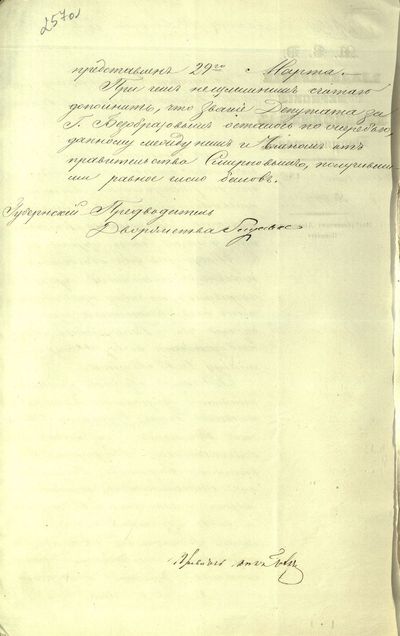 257об
представленъ 29го Марта.
При чемъ неизлишнимъ считаю
дополнить, что званіе Депутата за
Г. Безобразовымъ осталось по
данному между нимъ и Членомъ отъ
правительства Смирновымъ, получивши
ми равное число баловъ.
Губернскій Предводитель
Дворянства